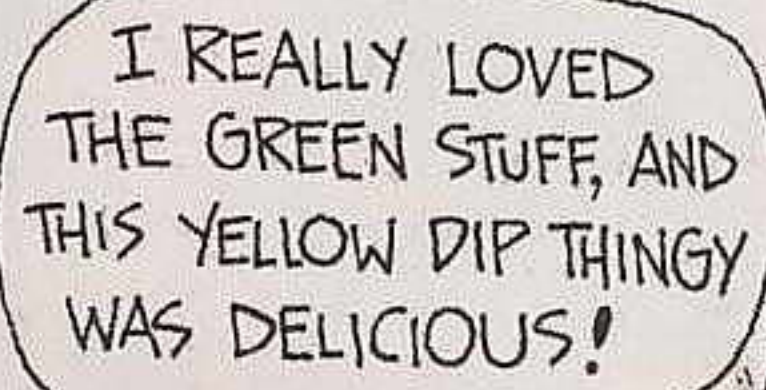 I REALLY LOVED
THE GREEN STUFF, AND
THIS YELLOW DIP THINGY
WAS DELICIOUS!